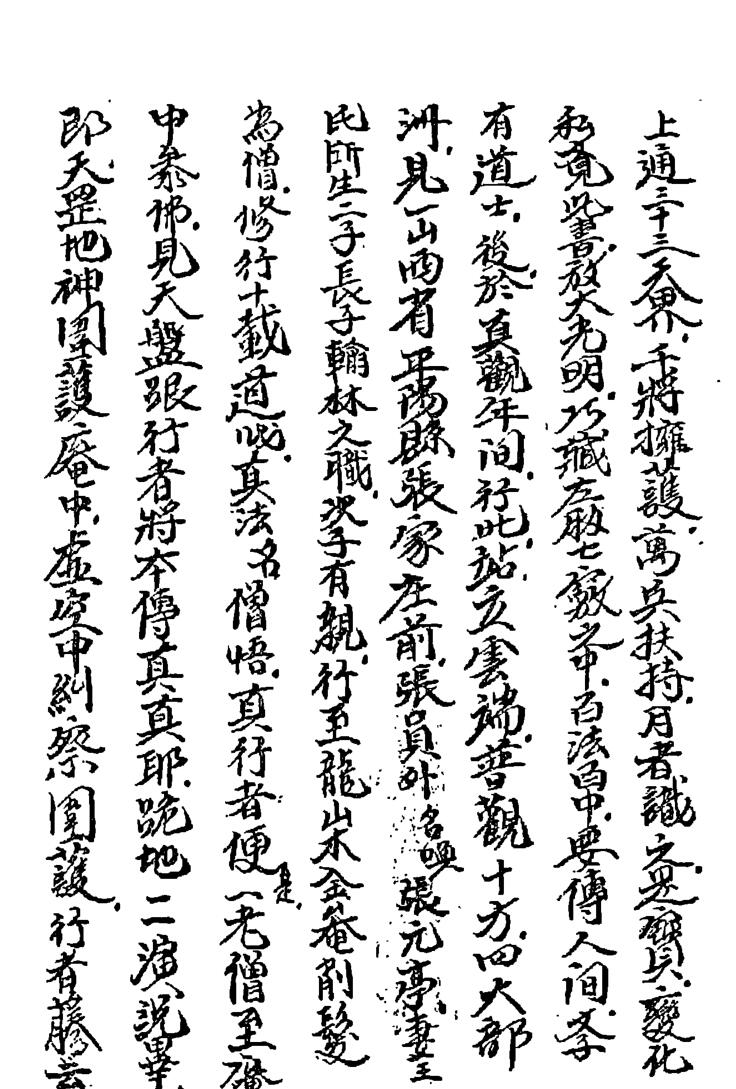 上通三十三天界千將擁護萬兵扶持月者識之是寶貝變化
私竟此書放大光明巧藏在殷七竅之中百法百中要傳人間李
有道士後於真觀年间行此站立雲端普觀十方四大部
洲見一山西省平陽縣張家庄前張員外名喚張元亭妻王
氏所生二子長子翰林之職次子有親行至龍山木金菴削髮
為僧修行十載道成真法名僧悟真行者便是一老僧至
中叅佛見天盤跟行者將本傳真真耶跪地二演説畢
即天罡地神圍護庵中虛空中糾察圍護行者藤云